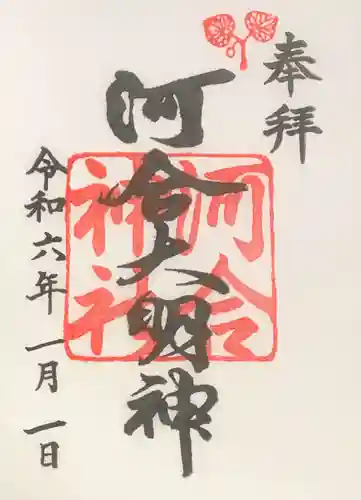 奉拝
河合大明神
河合
神社
令和六年 一月 一日